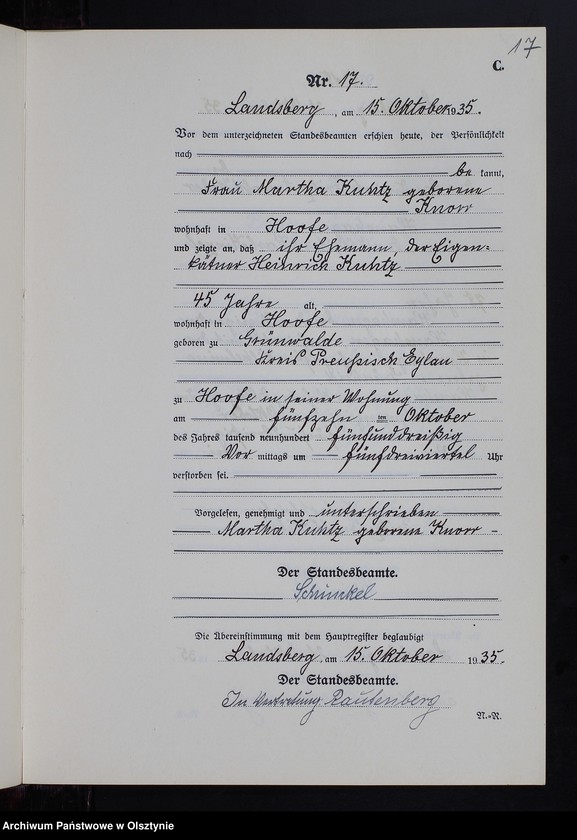 17
C.
Nr. 17.
Landsberg, am 15. Oktober 1935.
Vor dem unterzeichneten Standesbeamten erschien heute, der Persönlichkeit
nach
be kannt,
Frau Martha Kuhtz geborene
Knorr
wohnhaft in Hoofe
und zeigte an, daß ihr Ehemann, der Eigen-
kätner Heinrich Kuhtz
45 Jahre alt,
wohnhaft in Hoofe
geboren zu Grünwalde
Kreis Preußisch Eylau
zu Hoofe in seiner Wohnung
am fünfzehn ten Oktober
des Jahres tausend neunhundert fünfunddreißig
Vor mittags um fünfdreiviertel Uhr
verstorben sei.
Vorgelesen, genehmigt und unterschrieben
Martha Kuhtz geborene Knorr -
Der Standesbeamte.
Schinkel
Die Übereinstimmung mit dem Hauptregister beglaubigt
Landsberg, am 15. Oktober 1935.
Der Standesbeamte.
In Vertretung Rautenberg
N.-R.
Archiwum Państwowe w Olsztynie